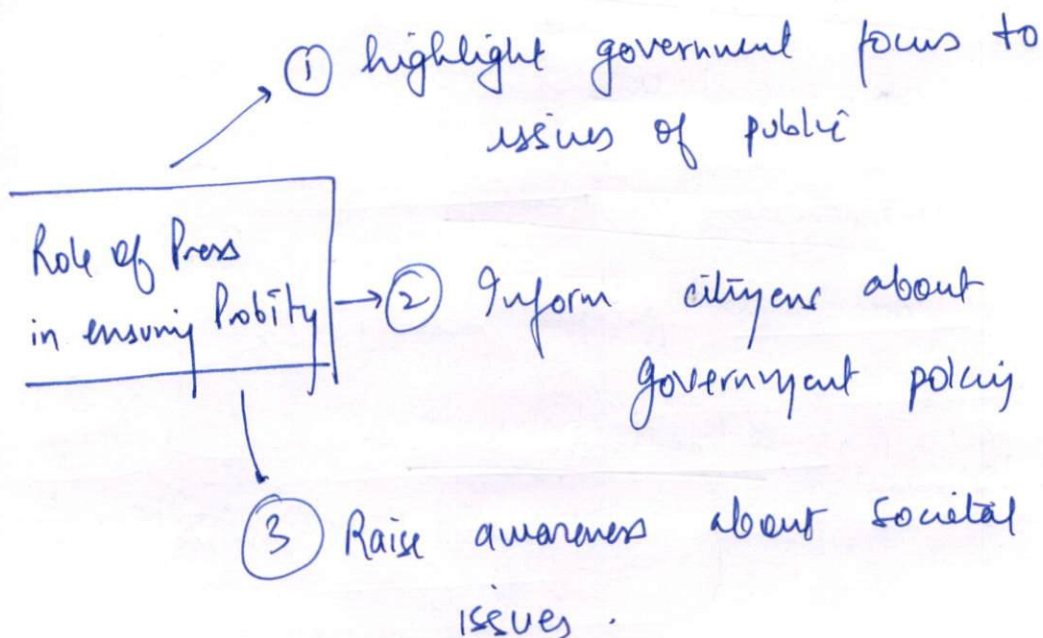 ① highlight government focus to
issues of public
Role of Press
in ensuring Probity
② Inform citizens about
government policies
③ Raise awareness about societal
issues.